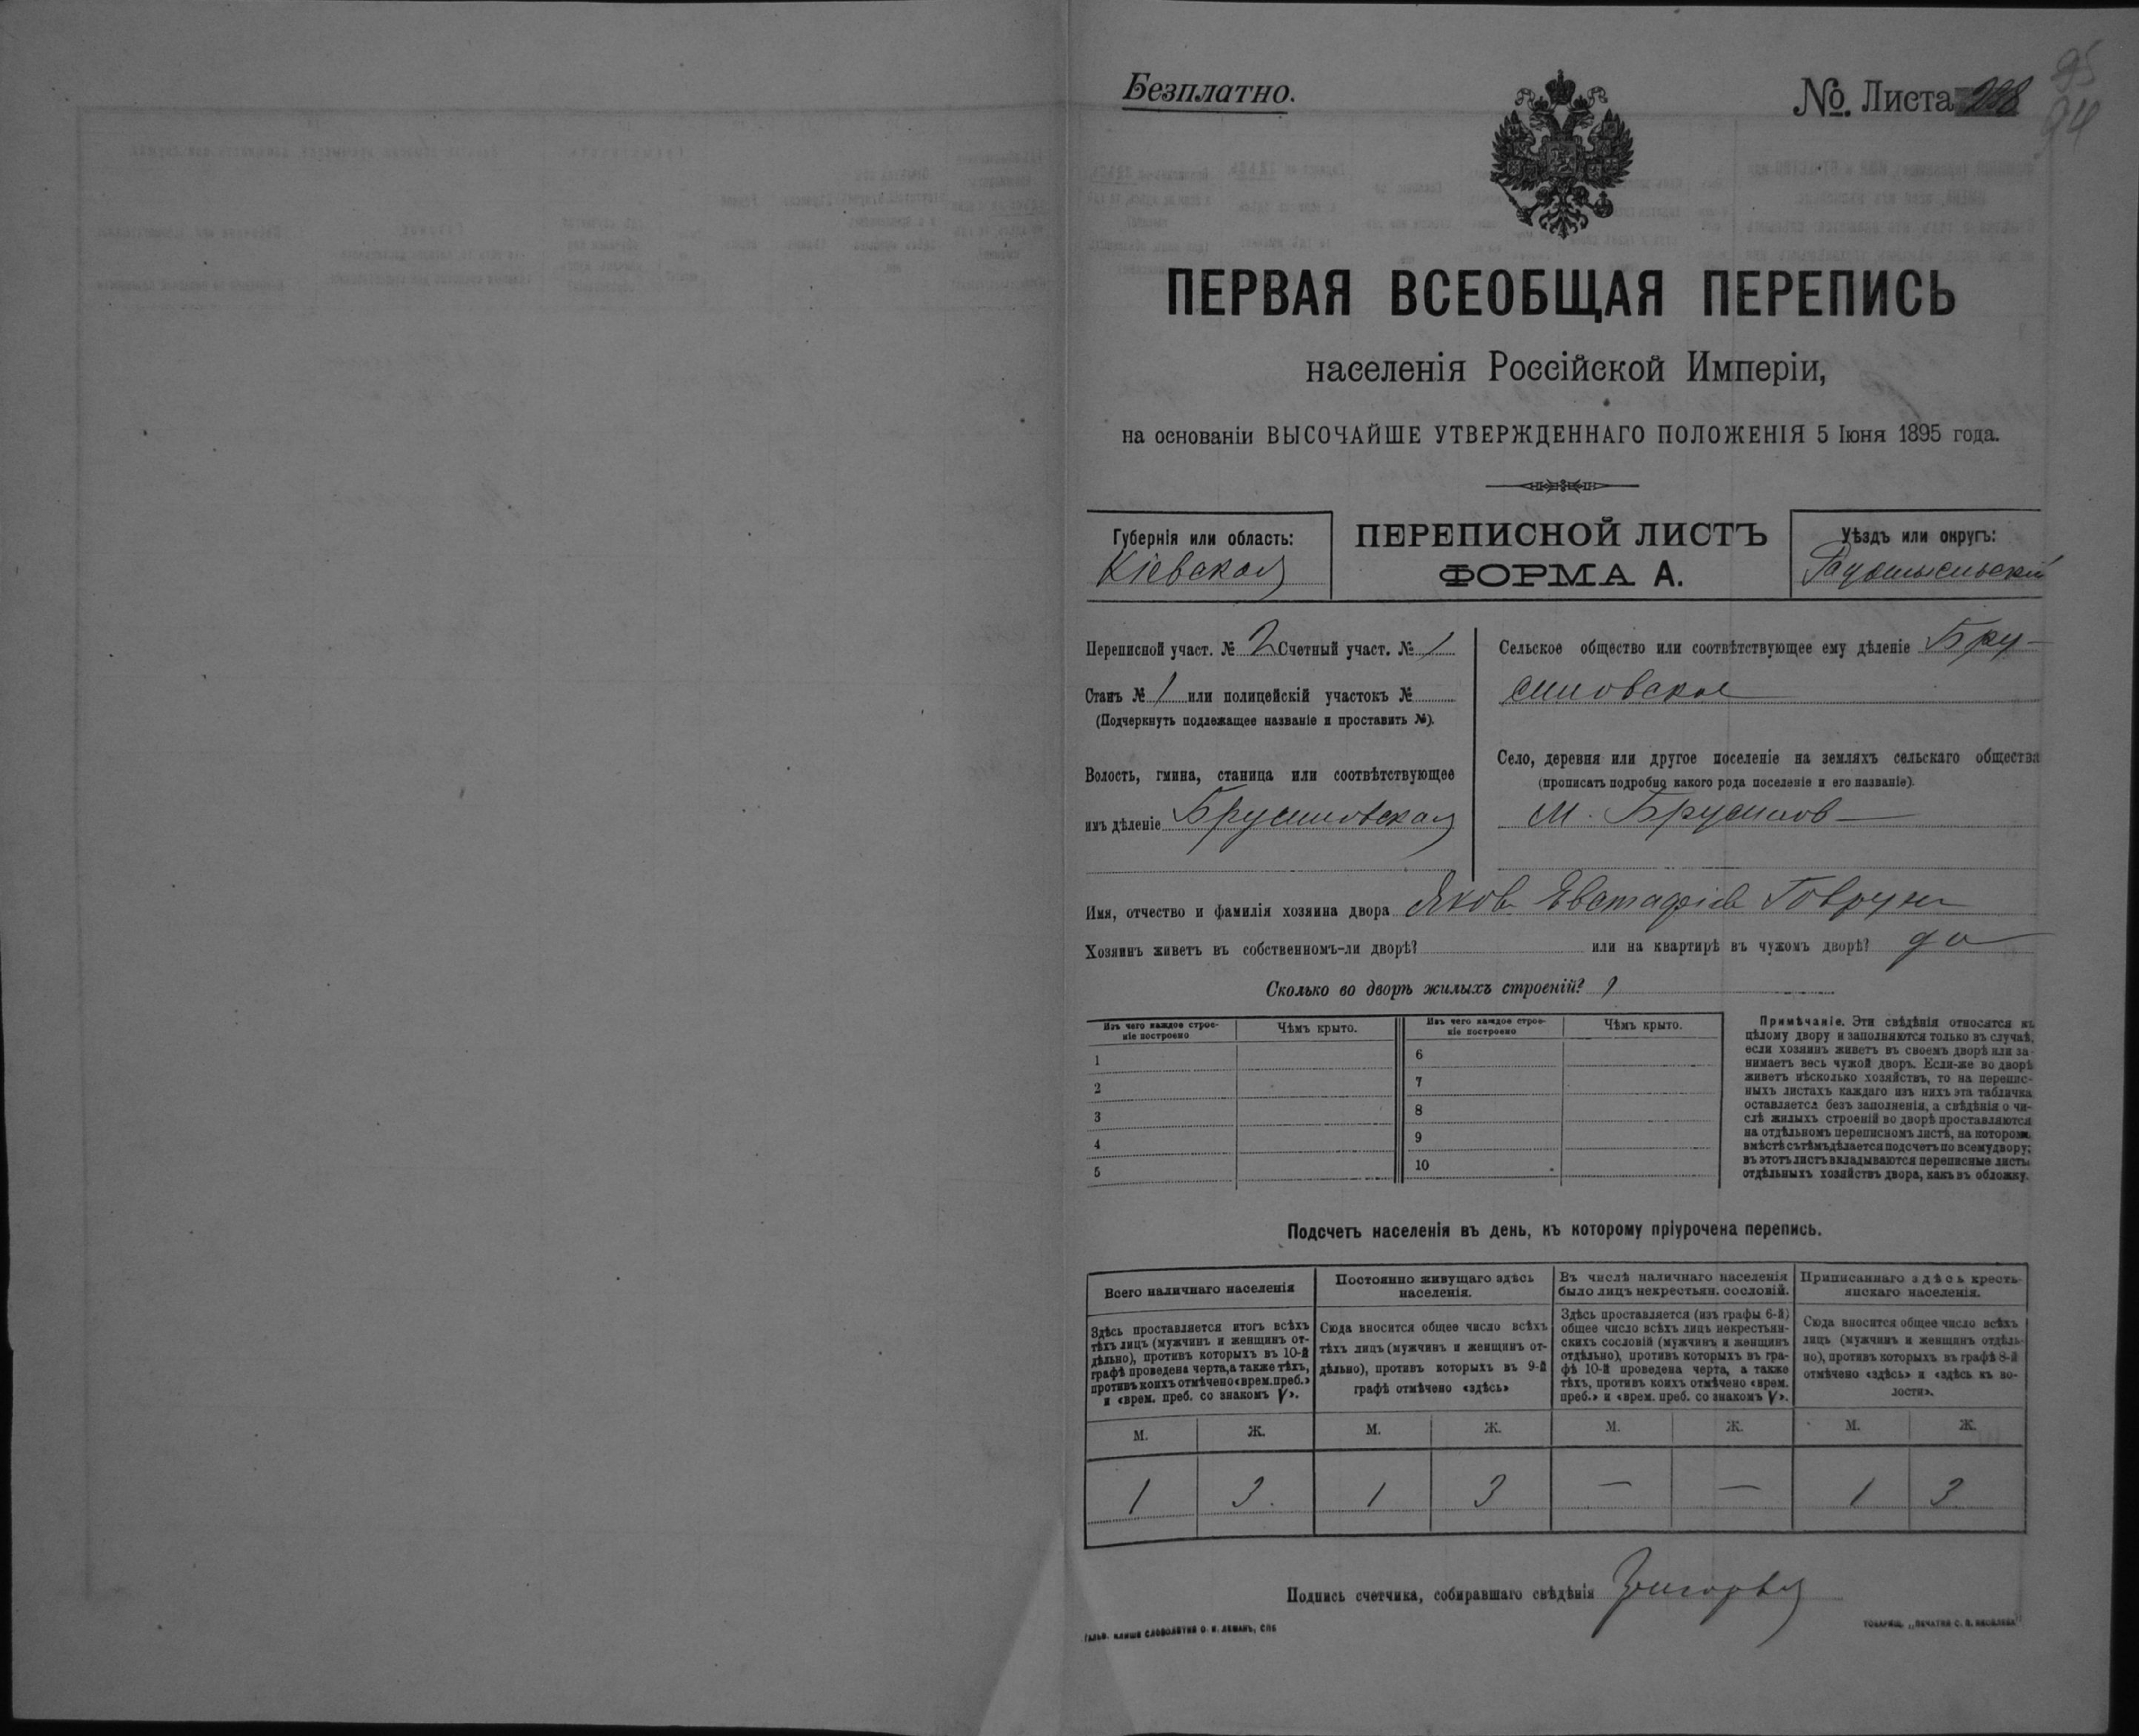 Безплатно.
№. Листа 288
95
94
ПЕРВАЯ ВСЕОБЩАЯ ПЕРЕПИСЬ
населенія Россійской Имперіи,
на основаніи ВЫСОЧАЙШЕ УТВЕРЖДЕННАГО ПОЛОЖЕНІЯ 5 Іюня 1895 года.
Губернія или область:
Кіевская
ПЕРЕПИСНОЙ ЛИСТЪ
ФОРМА А.
Уѣздъ или округъ:
Радомысльскій
Переписной участ. № 2 Счетный участ. № 1
Станъ № 1 или полицейскій участокъ №
(Подчеркнуть подлежащее названіе и проставить №).
Волость, гмина, станица или соотвѣтствующее
имъ дѣленіе Брусиловская
Сельское общество или соотвѣтствующее ему дѣленіе Бру-
силовское
Село, деревня или другое поселеніе на земляхъ сельскаго общества
(прописать подробно какого рода поселеніе и его названіе).
М. Брусилов
Имя, отчество и фамилія хозяина двора Яков Евстафіев
Хозяинъ живетъ въ собственномъ-ли дворѣ? или на квартирѣ въ чужомъ дворѣ? да
Сколько во дворѣ жилыхъ строеній? 1
Изъ чего каждое строе-
ніе построено
Чѣмъ крыто.
1
2
3
4
5
Изъ чего каждое строе-
ніе построено
Чѣмъ крыто.
6
7
8
9
10
Примѣчаніе. Эти свѣдѣнія относятся къ
цѣлому двору и заполняются только въ случаѣ,
если хозяинъ живетъ въ своемъ дворѣ или за-
нимаетъ весь чужой дворъ. Если-же во дворѣ
живетъ нѣсколько хозяйствъ, то на перепис-
ныхъ листахъ каждаго изъ нихъ эта табличка
оставляется безъ заполненія, а свѣдѣнія о чи-
слѣ жилыхъ строеній во дворѣ проставляются
на отдѣльномъ переписномъ листѣ, на которомъ
вмѣстѣ съ тѣмъ дѣлается подсчетъ по всему двору;
въ этотъ листъ вкладываются переписные листы
отдѣльныхъ хозяйствъ двора, какъ въ обложку.
Подсчетъ населенія въ день, къ которому пріурочена перепись.
Всего наличнаго населенія
Здѣсь проставляется итогъ всѣхъ
тѣхъ лицъ (мужчинъ и женщинъ от-
дѣльно), противъ которыхъ въ 10-й
графѣ проведена черта, а также тѣхъ,
противъ коихъ отмѣчено «врем. преб.»
и «врем. преб. со знакомъ V».
Постоянно живущаго здѣсь
населенія.
Сюда вносится общее число всѣхъ
тѣхъ лицъ (мужчинъ и женщинъ от-
дѣльно), противъ которыхъ въ 9-й
графѣ отмѣчено «здѣсь»
Въ числѣ наличнаго населенія
было лицъ некрестьян. сословій.
Здѣсь проставляется (изъ графы 6-й)
общее число всѣхъ лицъ некрестьян-
скихъ сословій (мужчинъ и женщинъ
отдѣльно), противъ которыхъ въ гра-
фѣ 10-й проведена черта, а также
тѣхъ, противъ коихъ отмѣчено «врем.
преб.» и «врем. преб. со знакомъ V».
Приписаннаго здѣсь кресть-
янскаго населенія.
Сюда вносится общее число всѣхъ
лицъ (мужчинъ и женщинъ отдѣль-
но), противъ которыхъ въ графѣ 8-й
отмѣчено «здѣсь» и «здѣсь къ во-
лости».
М. Ж. М. Ж. М. Ж. М. Ж.
1 3. 1 3 — — 1 3
Подпись счетчика, собиравшаго свѣдѣнія
ГАЛЬВ. КЛИШЕ СЛОВОЛИТНИ О. И. ЛЕМАНЪ, СПБ
ТОВАРИЩ. „ПЕЧАТНЯ С. П. ЯКОВЛЕВА"